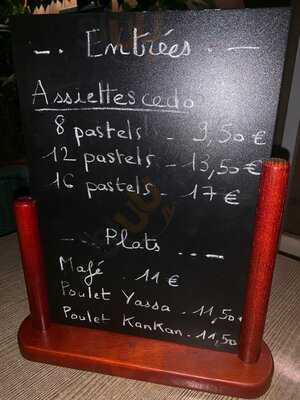 Entrées
Assiettes cedo
8 pastels - 9,50 €
12 pastels - 13,50 €
16 pastels - 17 €
Plats
Mafé . 11 €
Poulet Yassa . 11,50
Poulet KanKan . 11,50